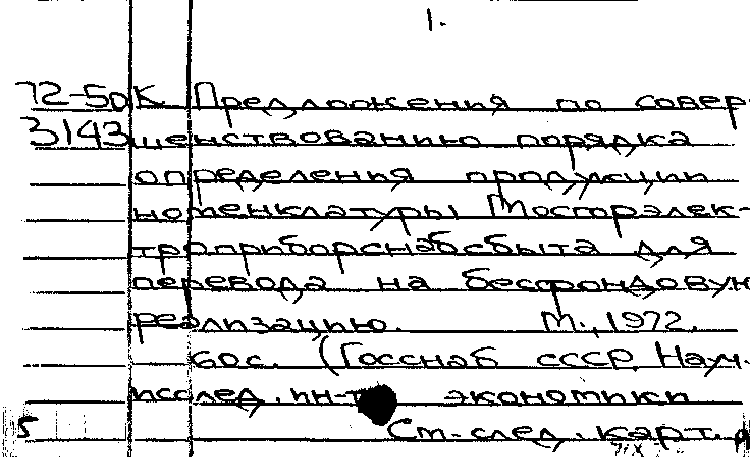 1.
72-50 К Предложения по совер-
3143 шенствованию порядка
определения продукции
номенклатуры Мосгорэлек-
троприборснабсбыта для
перевода на бесфондовую
реализацию. М., 1972.
60с. (Госснаб СССР. Науч.-
исслед. ин-т экономики
5 См. след. карт.